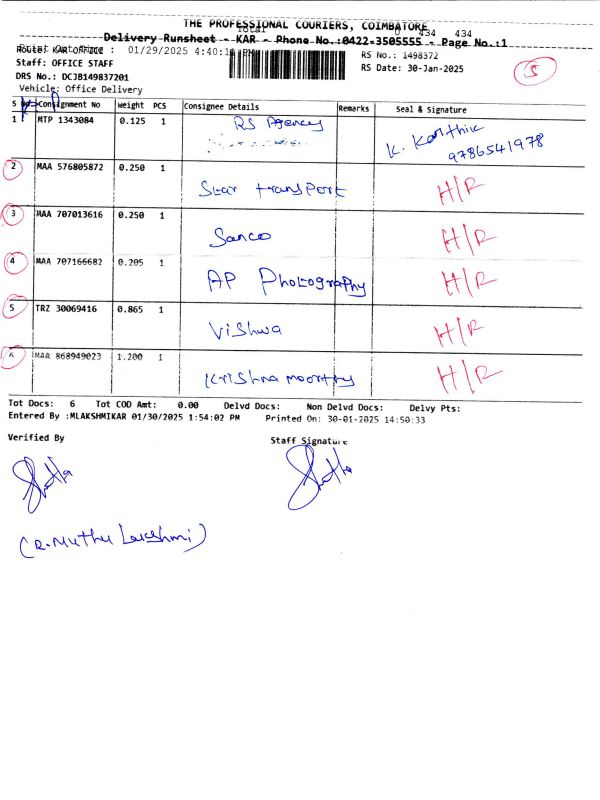 THE PROFESSIONAL COURIERS, COIMBATORE
Total 0 434 434
Delivery Runsheet - KAR - Phone No.:0422-3505555 - Page No.:1
Route: KAR OFFICE : 01/29/2025 4:40:1 PM
RS No.: 1498372
Staff: OFFICE STAFF
RS Date: 30-Jan-2025
5
DRS No.: DCJB149837201
Vehicle: Office Delivery
S No Consignment No Weight PCS Consignee Details Remarks Seal & Signature
1 MTP 1343084 0.125 1 RS Agency K. Karthik
9786541978
2 MAA 576805872 0.250 1 Star transport H/R
3 MAA 707013616 0.250 1 Sanco H/R
4 MAA 707166682 0.205 1 AP Photography H/R
5 TRZ 30069416 0.865 1 Vishwa H/R
6 MAA 868949023 1.200 1 Krishna moorthy H/R
Tot Docs: 6 Tot COD Amt: 0.00 Delvd Docs: Non Delvd Docs: Delvy Pts:
Entered By :MLAKSHMIKAR 01/30/2025 1:54:02 PM Printed On: 30-01-2025 14:50:33
Verified By Staff Signature
(R. Muthu Lakshmi)